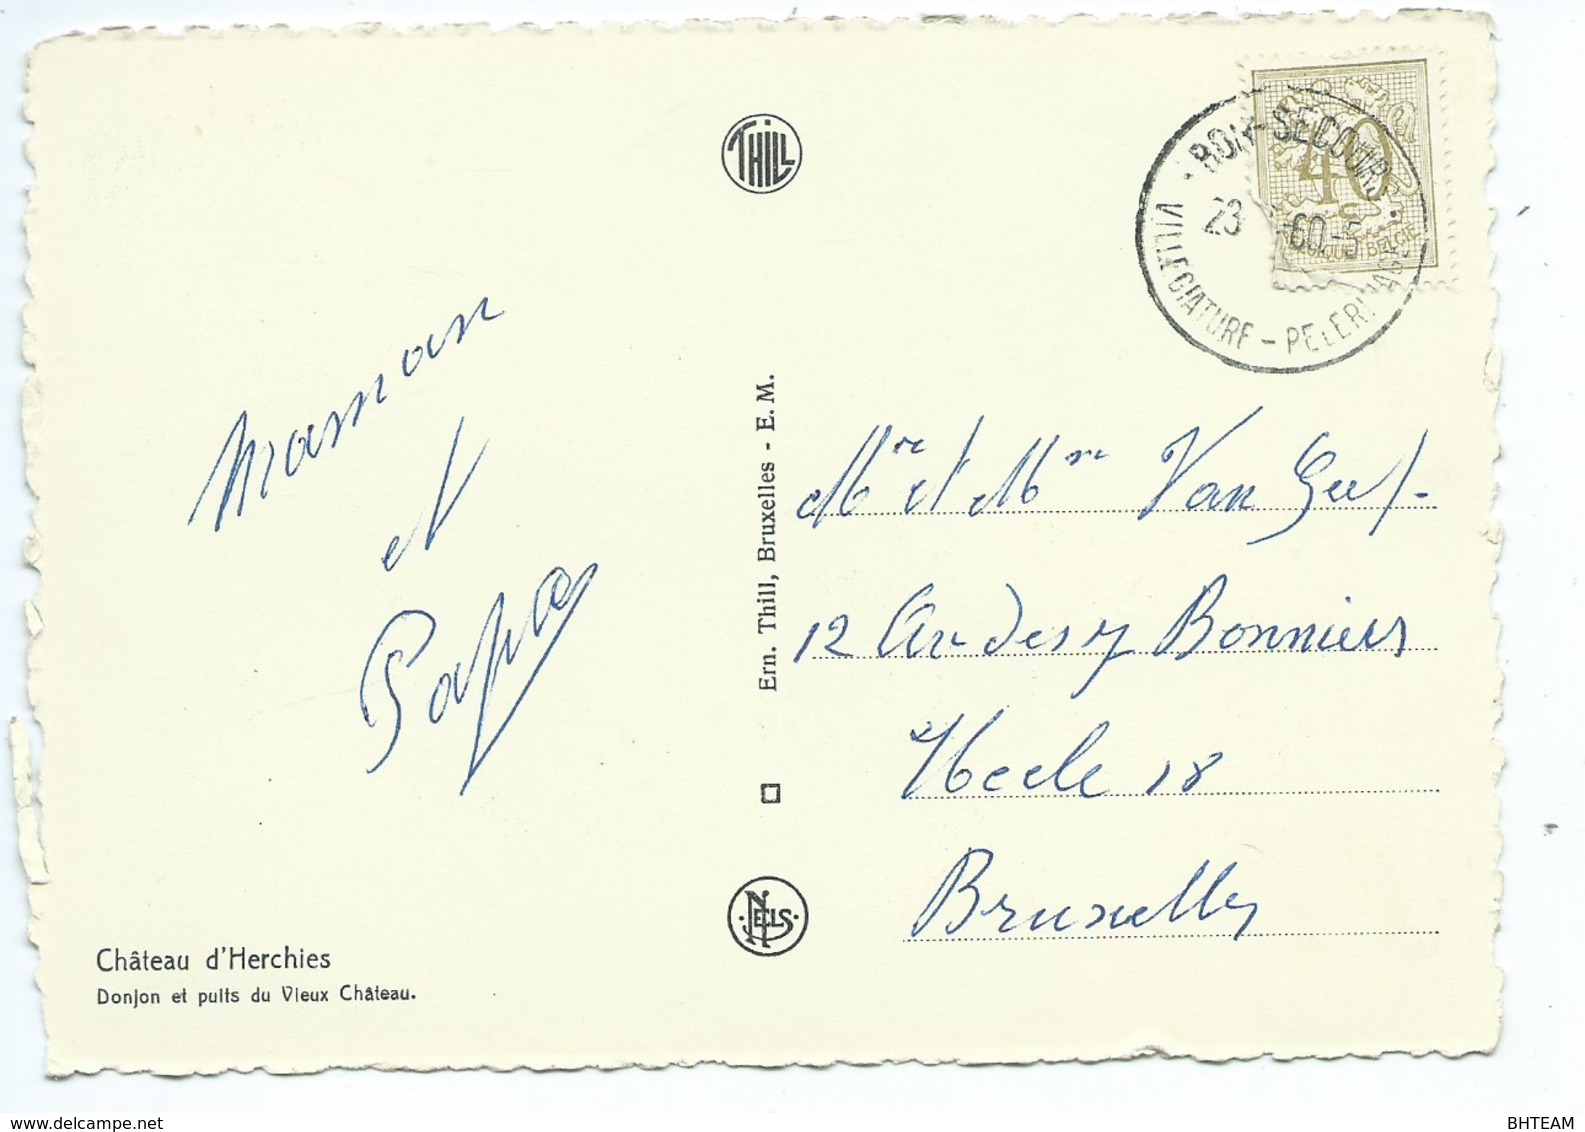 THILL
BON-SECOURS
23 60-5
VILLEGIATURE - PELERINAGE
40
BELGIE
Maman
et
Papa
Ern. Thill, Bruxelles - E. M.
Mr et Mme Van Geel.
12 Av des 7 Bonniers
Uccle 18
Bruxelles
NELS
Château d'Herchies
Donjon et puits du Vieux Château.
BHTEAM